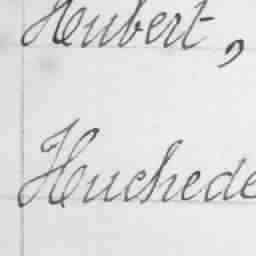 Hubert,
Huchede